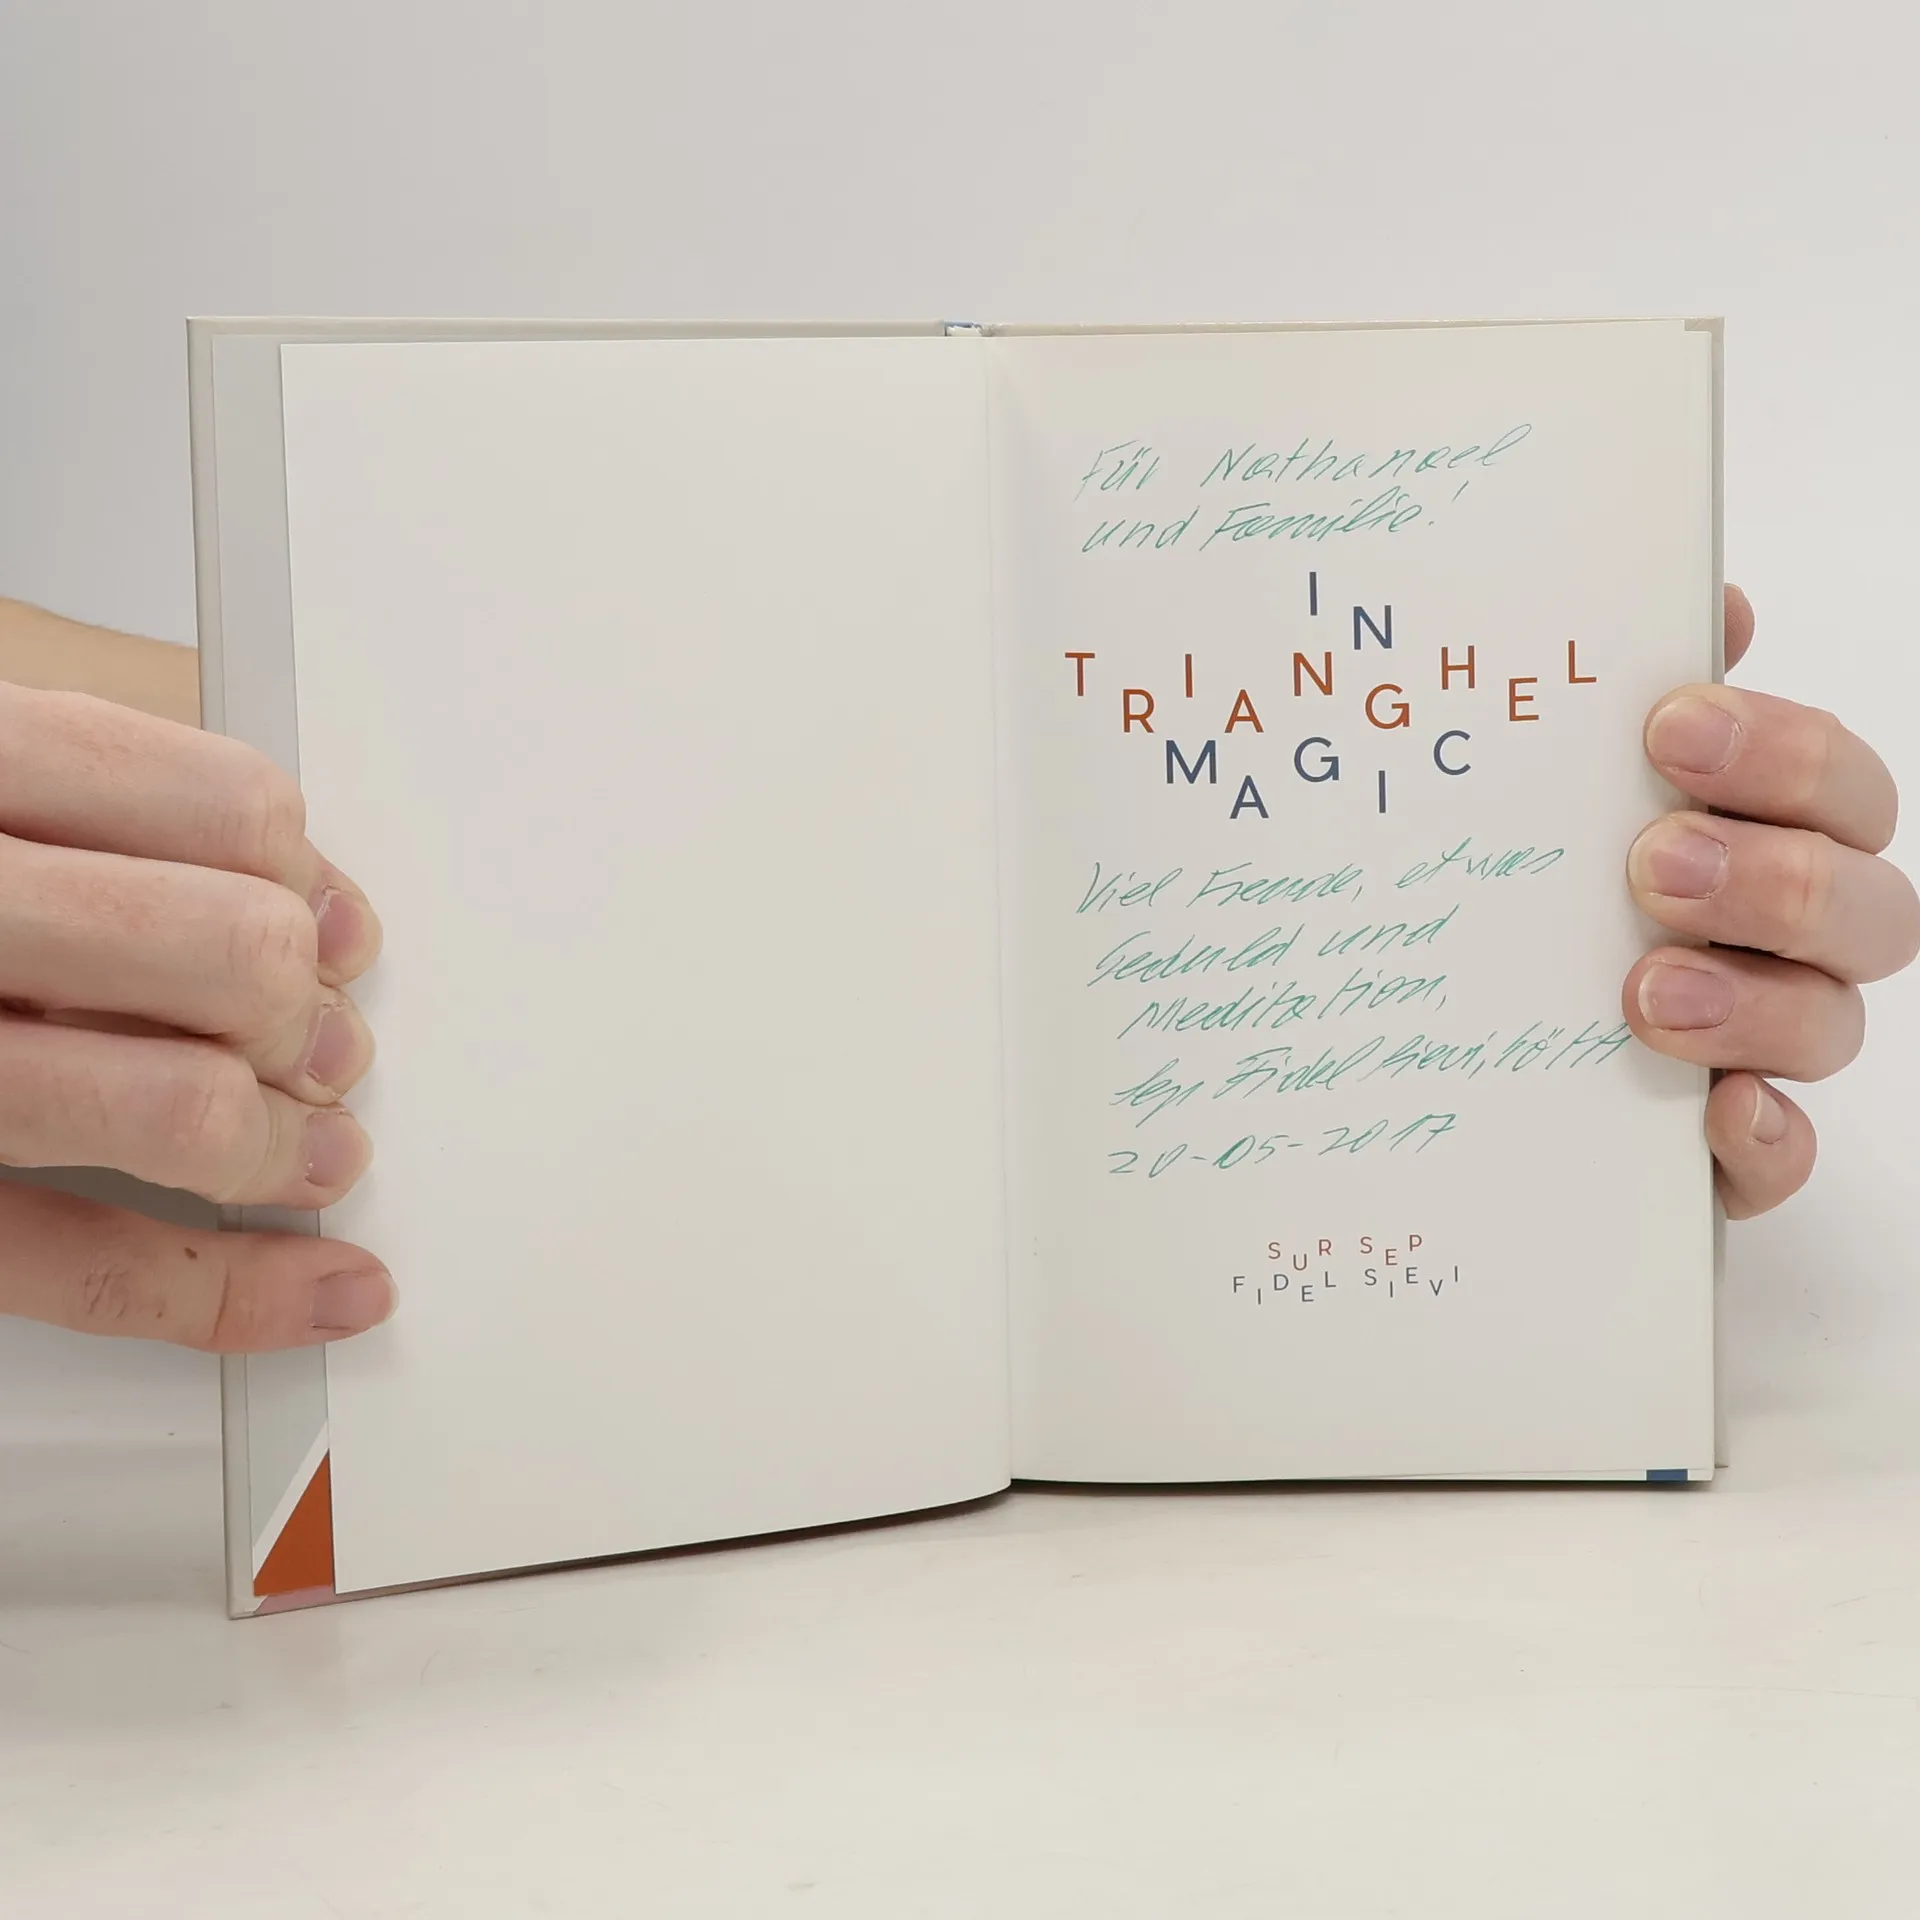 Für Nathanael
und Familie!
IN
TRIANGHEL
MAGIC
Viel Freude, etwas
Geduld und
Meditation,
Sep Fidel Sievi,
20-05-2017
SUR SEP
FIDEL SIEVI